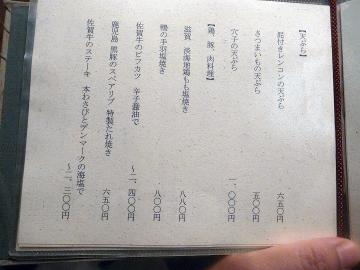 【天ぷら】
殻付きレンコンの天ぷら 六五〇円
さつまいもの天ぷら 五〇〇円
穴子の天ぷら 一、〇〇〇円
【鶏、豚、肉料理】
滋賀 淡海地鶏もも塩焼き 八八〇円
鴨の手羽塩焼き 八〇〇円
佐賀牛のビフカツ 辛子醤油で 〜二、四〇〇円
鹿児島 黒豚のスペアリブ 特製たれ焼き 六五〇円
佐賀牛のステーキ 本わさびとデンマークの海塩で 〜二、三〇〇円